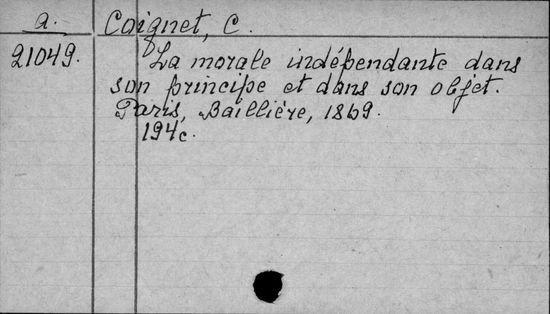 a. Coignet, C.
21049. La morale indépendante dans
son principe et dans son objet.
Paris, Baillière, 1869.
194c.